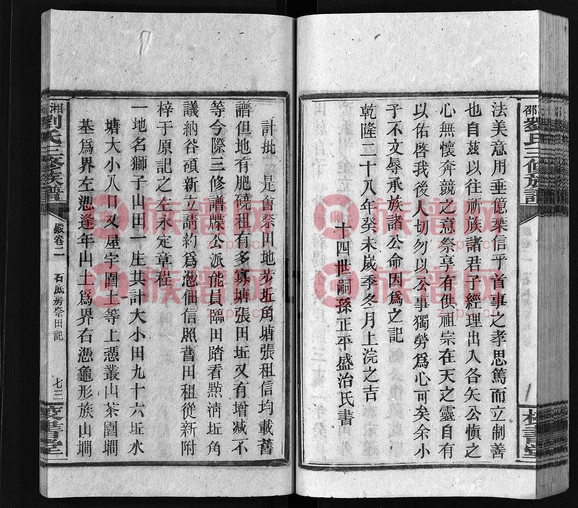 法美意用垂億㮣信乎首事之孝思篤而立制善
也自茲以往祈族諸君子經理出入各矢公愼之
心無懷奔競之意祭享有俾祖宗在天之靈自有
以佑啓我後人切勿以公事獨勞爲心可矣余小
子不文辱承族諸公命因爲之記
乾隆二十八年癸未歲季冬月上浣之吉
十四世嗣孫正平盛治氏書
計批一是畲祭田地芳坵角塘張租信均載舊
譜但地有肥饒租有多寡塘張田坵又有增减不
等今際三修譜牒公派能員臨田踏看㸃淸坵角
議納谷碩新立請約爲憑佃信照舊田租從新附
梓于原記之左永定章程
一地名獅子山田一庄共計大小田九十六坵水
塘大小八口又屋宇園土等上憑叢山茶園塹
基爲界左憑逢年山土爲界右憑龜形族山塹
湘劉氏三修族譜
卷二
石風房祭田記
七三
族譜网